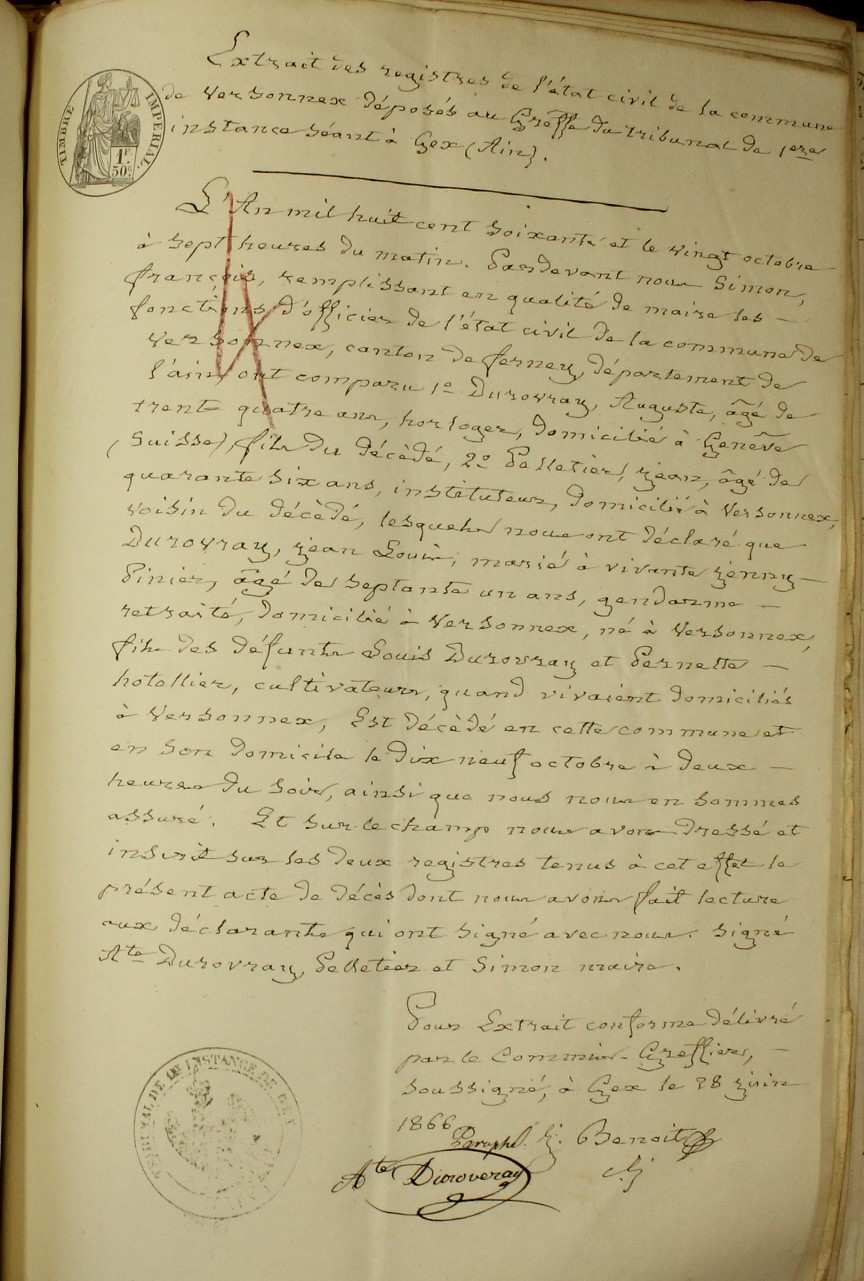 TIMBRE IMPÉRIAL.
1F. 50C.
Extrait des registres de l'état civil de la commune
de Versonnex déposés au Greffe du tribunal de 1ere
instance séant à Gex (Ain).
L'An mil huit cent soixante et le vingt octobre
à sept heures du matin. Pardevant nous Simon,
françois, remplissant en qualité de maire les —
fonctions d'officier de l'état civil de la commune de
Versonnex, canton de ferney, département de
l'ain, ont comparu 1o Durovray, Auguste, âgé de
trente quatre ans, horloger, domicilié à Genève
(Suisse), fils du décèdé, 2o Pelletier, jean, âgé de
quarante six ans, instituteur, domicilié à Versonnex,
voisin du décèdé, lesquels nous ont déclaré que
Durovray, jean Louis, marié à vivante jenny —
Pinier, âgé de septante un ans, gendarme —
retraité, domicilié à Versonnex, né à Versonnex,
fils des défunts Louis Durovray et Pernette —
hotollier, cultivateurs, quand vivaient domiciliés
à Versonnex, Est décèdé en cette commune et
en son domicile le dix neuf octobre à deux —
heures du soir, ainsi que nous nous en sommes
assuré. Et sur-le-champ nous avons dressé et
inscrit sur les deux registres tenus à cet effet le
présent acte de décès dont nous avons fait lecture
aux déclarants qui ont signé avec nous. Signé
Ate Durovray, Pelletier et Simon maire.
Pour Extrait conforme délivré
par le Commis-Greffier, —
soussigné, à Gex le 28 juin
1866
Paraphé. J. Benoit
Ate Duroveray
TRIBUNAL DE 1RE INSTANCE DE GEX